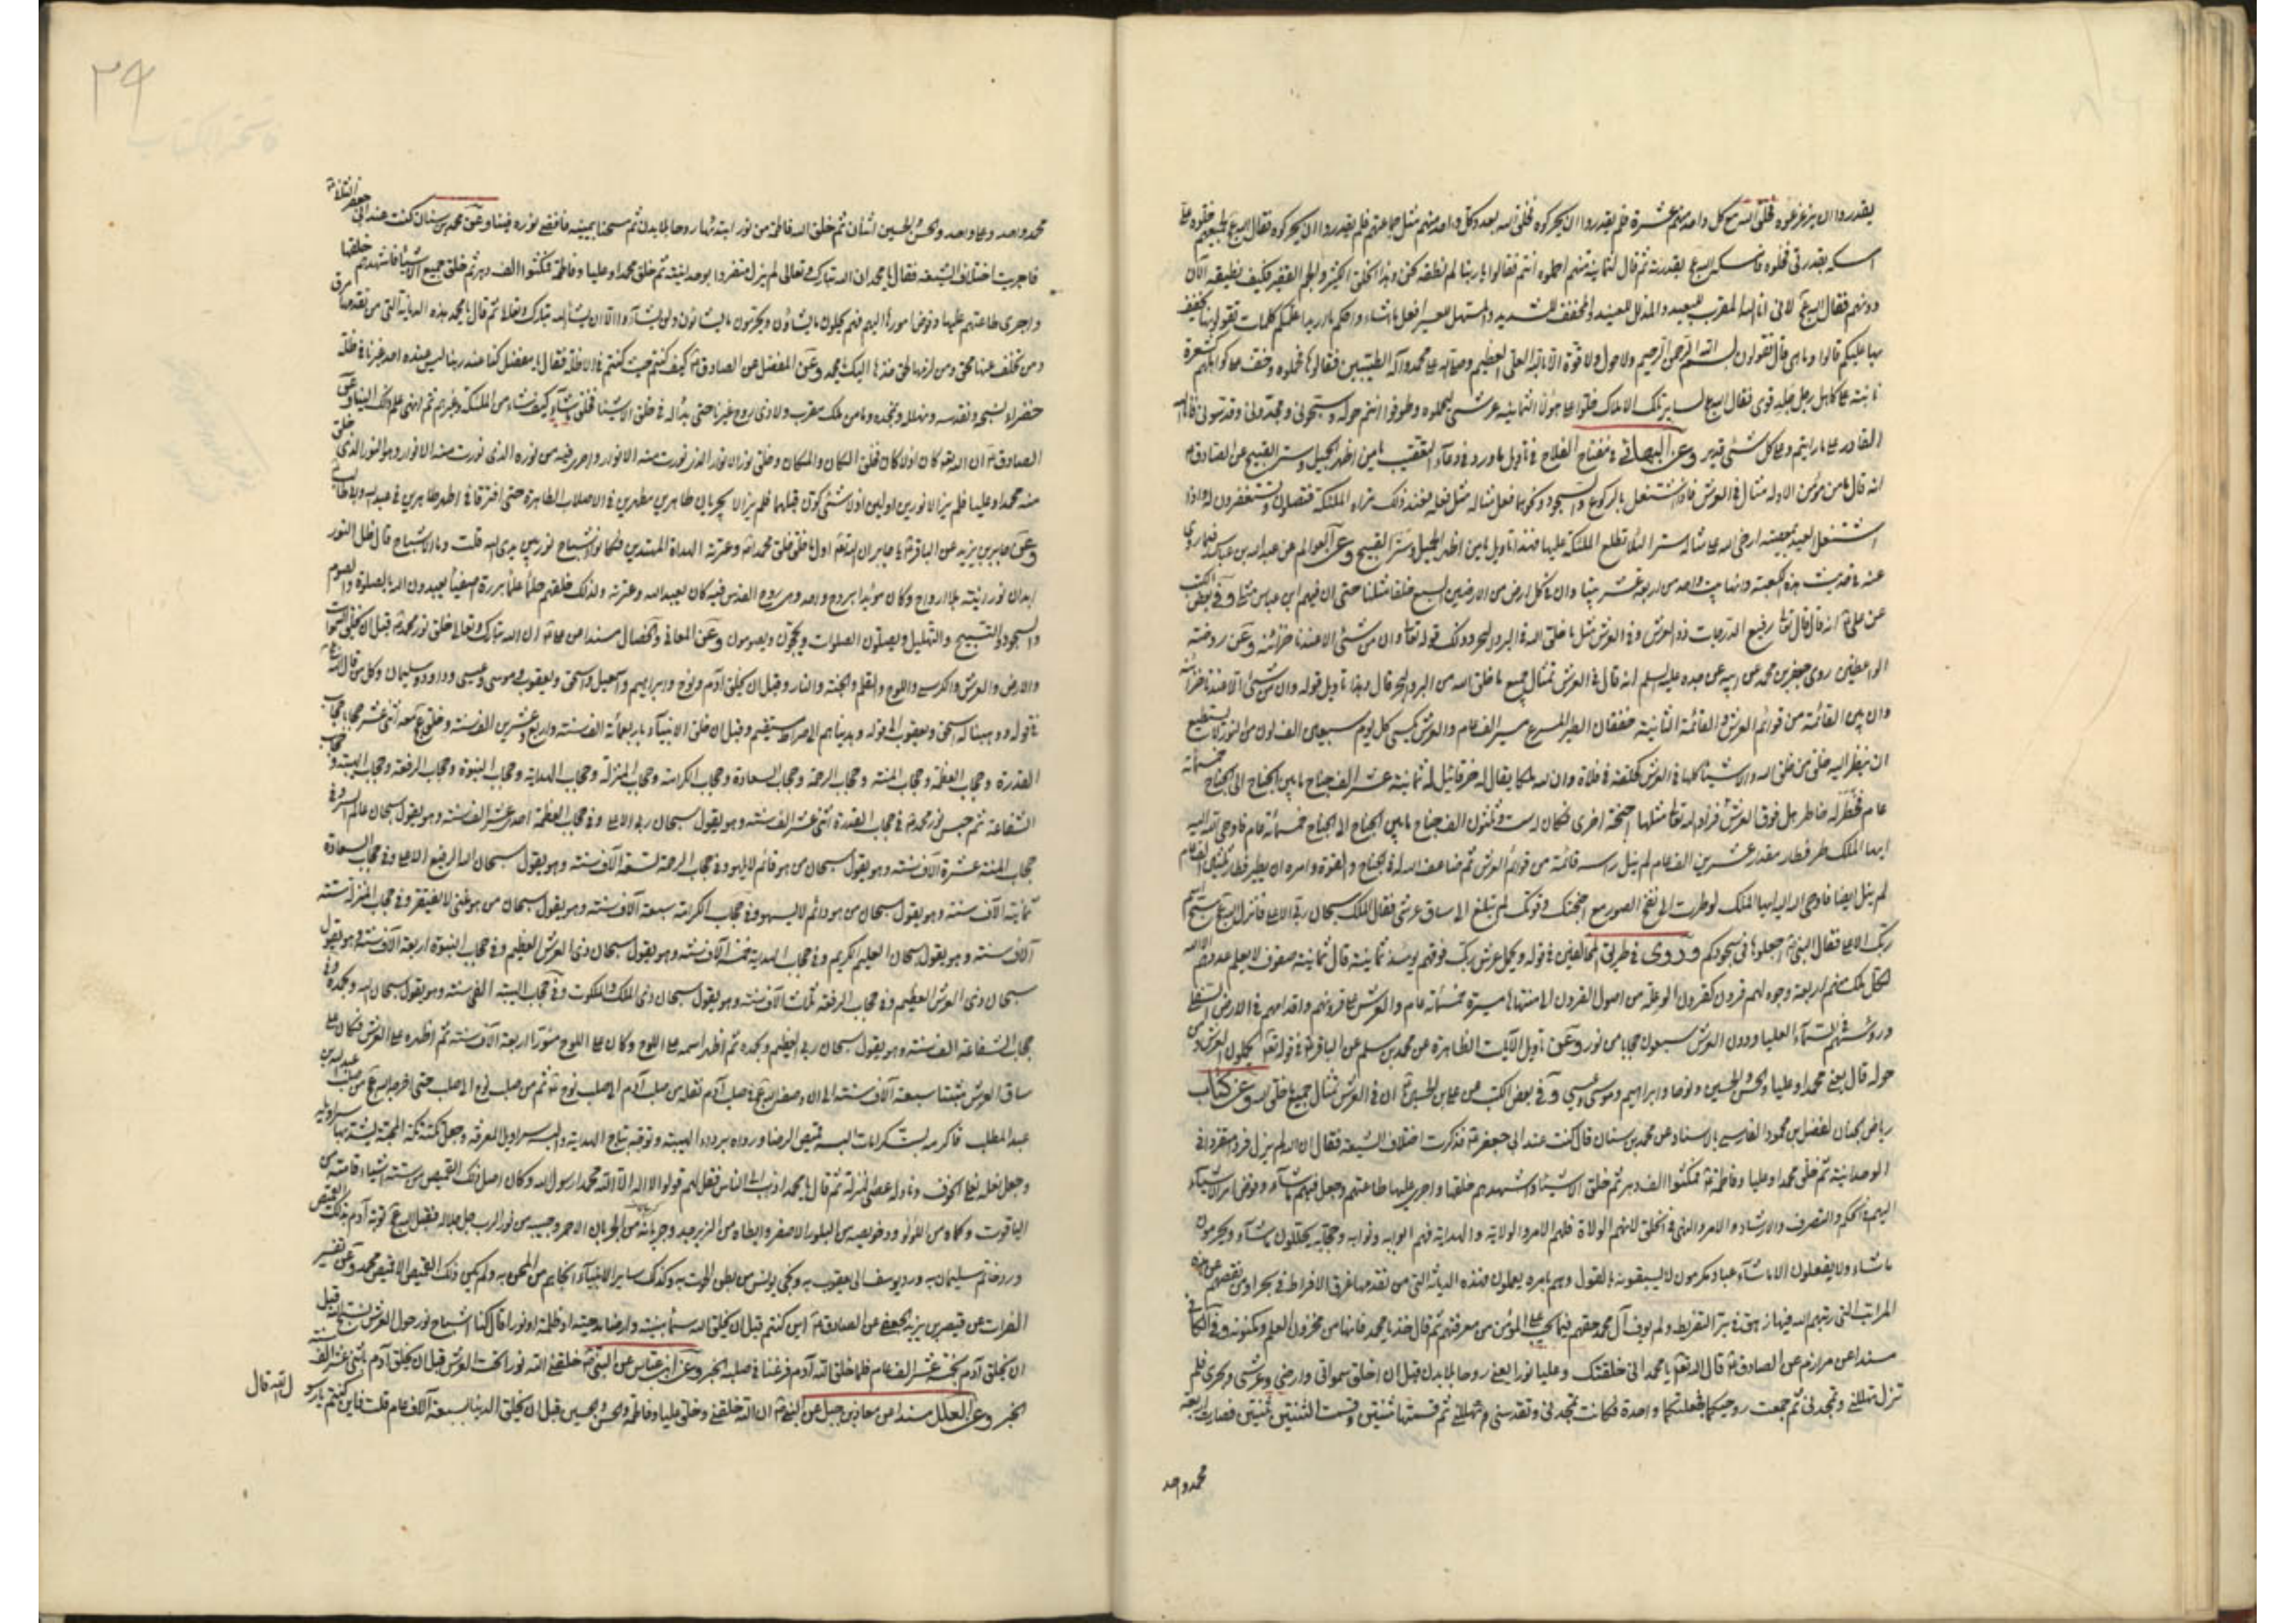 يقدروا ان يزعزعوه فخلق الله مع كل واحد منهم عشرة فلم يقدروا ان يحركوه فخلق الله بعدد كل واحد منهم مثل جماعتهم فلم يقدروا ان يحركوه فقال الله ع لجميعهم خلوه على
امسكه بقدرتي فخلوه فامسكه الله ع بقدرته ثم قال لثمانية منهم احملوه انتم فقالوا يا ربنا لم نطقه نحن وهذا الخلق الكثير والجم الغفير فكيف نطيقه الآن
دونهم فقال الله ع لاني انا الله المقرب للبعيد والمذلل للعنيد والمخفف للشديد والمسهل للعسير افعل ما اشاء واحكم ما اريد اعلمكم كلمات تقولونها يخفف
بها عليكم قالوا وما هي قال تقولون بسم الله الرحمن الرحيم ولا حول ولا قوة الا بالله العلي العظيم وصلى الله على محمد وآله الطيبين فقالوها فحملوه وخف على كواهلهم كشعرة
نابتة على كاهل رجل جلد قوي فقال الله ع لساير تلك الاملاك خلوا على هؤلاء الثمانية عرشي ليحملوه وطوفوا انتم حوله وسبحوني ومجدوني وقدسوني فانا الله
القادر على ما رايتم وعلى كل شيء قدير وعن البهائي في مفتاح الفلاح في تأويل ما ورد في دعاء التعقيب يا من اظهر الجميل وستر القبيح عن الصادق ع
انه قال ما من مؤمن الا وله مثال في العرش فاذا اشتغل بالركوع والسجود ونحوهما فعل مثاله مثل فعله فعند ذلك تراه الملئكة فتصلون وتستغفرون له واذا
اشتغل العبد بمعصية ارخى الله على مثاله سترا لئلا تطلع الملئكة عليها فهذا تأويل يا من اظهر الجميل وستر القبيح وعن العوالم عن عبد الله بن عباس فيما روى
عنه في حديث هذه الكعبة وانها بيت واحد من اربعة عشر بيتا وان في كل ارض من الارضين السبع خلقا مثلنا حتى ان فيهم ابن عباس مثلي وفي بعض الكتب
عن علي ع انه قال قال تعالى رفيع الدرجات ذو العرش وفي العرش مثل ما خلق الله في البر والبحر وذلك قوله تعالى وان من شيء الا عندنا خزائنه وعن روضة
الواعظين روى جعفر بن محمد عن ابيه عن جده عليه السلم انه قال في العرش تمثال جميع ما خلق الله من البر والبحر قال وهذا تأويل قوله وان من شيء الا عندنا خزائنه
وان بين القائمة من قوائم العرش والقائمة الثانية خفقان الطير المسرع مسير الف عام والعرش يكسى كل يوم سبعين الف لون من النور لا يستطيع
ان ينظر اليه خلق من خلق الله والاشياء كلها في العرش كحلقة في فلاة وان لله ملكا يقال له خرقائيل له ثمانية عشر الف جناح ما بين الجناح الى الجناح خمسمائة
عام فخطر له خاطر هل فوق العرش فزاد الله تعالى مثلها اجنحة اخرى فكان له ست وثلثون الف جناح ما بين الجناح الى الجناح خمسمائة عام فاوحى الله اليه
ايها الملك طر فطار مقدار عشرين الف عام لم ينل راسه قائمة من قوائم العرش ثم ضاعف الله له في الجناح والقوة وامره ان يطير فطار ثلثين الف عام
لم ينل ايضا فاوحى الله اليه ايها الملك لو طرت الى نفخ الصور مع اجنحتك وقوتك لم تبلغ الى ساق عرشي فقال الملك سبحان ربي الاعلى فانزل الله ع سبح اسم
ربك الاعلى فقال النبي ص اجعلوها في سجودكم وروى في طريق المخالفين في قوله ويحمل عرش ربك فوقهم يومئذ ثمانية قال ثمانية صفوف لا يعلم عددهم الا الله
لكل ملك منهم اربعة وجوه لهم قرون كقرون الوعلة من اصول القرون الى منتهاها مسيرة خمسمائة عام والعرش على قرونهم واقدامهم في الارض السفلى
ورؤسهم في السماء العليا ودون العرش سبعون حجابا من نور وعن تأويل الآيات الظاهرة عن محمد بن مسلم عن الباقر ع في قوله تعالى الذين يحملون العرش ومن
حوله قال يعني محمدا وعليا والحسن والحسين ونوحا وابراهيم وموسى وعيسى وفي بعض الكتب عن علي بن الحسين ع ان في العرش تمثال جميع ما خلق الله وعن كتاب
رياض الجنان لفضل بن محمود الفارسي بالاسناد عن محمد بن سنان قال كنت عند ابي جعفر ع فذكرت اختلاف الشيعة فقال ان الله لم يزل فردا متفردا في
الوحدانية ثم خلق محمدا وعليا وفاطمة ع فمكثوا الف دهر ثم خلق الاشياء واشهدهم خلقها واجرى عليها طاعتهم وجعل فيهم ما شاء وفوض امر الاشياء
اليهم في الحكم والتصرف والارشاد والامر والنهي في الخلق لانهم الولاة فلهم الامر والولاية والهداية فهم ابوابه ونوابه وحجابه يحللون ما شاء ويحرمون
ما شاء ولا يفعلون الا ما شاء عباد مكرمون لا يسبقونه بالقول وهم بامره يعملون فهذه الديانة التي من تقدمها غرق في بحر الافراط ومن نقصهم عن هذه
المراتب التي رتبهم الله فيها زهق في بر التفريط ولم يوف آل محمد حقهم فيما يجب على المؤمن من معرفتهم ثم قال خذها يا محمد فانها من مخزون العلم ومكنونه وفي الكافي
مسندا عن مرازم عن الصادق ع قال قال الله تعالى يا محمد اني خلقتك وعليا نورا يعني روحا بلا بدن قبل ان اخلق سمواتي وارضي وعرشي وبحري فلم
تزل تهللني وتمجدني ثم جمعت روحيكما فجعلتهما واحدة فكانت تمجدني وتقدسني وتهللني ثم قسمتها ثنتين وقسمت الثنتين ثنتين فصارت اربعة
محمد واحد
٢٩
فاتحة الكتاب
محمد واحد وعلي واحد والحسن والحسين اثنان ثم خلق الله فاطمة من نور ابتدئها روحا بلا بدن ثم مسحنا بيمينه فافضى نوره فينا وعن محمد بن سنان كنت عند ابي جعفر الثاني ع
فاجريت اختلاف الشيعة فقال يا محمد ان الله تبارك وتعالى لم يزل متفردا بوحدانيته ثم خلق محمدا وعليا وفاطمة فمكثوا الف دهر ثم خلق جميع الاشياء فاشهدهم خلقها
واجرى طاعتهم عليها وفوض امورها اليهم فهم يحلون ما يشاؤن ويحرمون ما يشاؤن ولن يشاؤا الا ان يشاء الله تبارك وتعالى ثم قال يا محمد هذه الديانة التي من تقدمها مرق
ومن تخلف عنها محق ومن لزمها لحق خذها اليك يا محمد وعن المفضل عن الصادق ع كيف كنتم حيث كنتم في الاظلة فقال يا مفضل كنا عند ربنا ليس عنده احد غيرنا في ظلة
خضراء نسبحه ونقدسه ونهلله ونمجده وما من ملك مقرب ولا ذي روح غيرنا حتى بدا له في خلق الاشياء فخلق ما شاء كيف شاء من الملئكة وغيرهم ثم انهى علم ذلك الينا وعن
الصادق ع ان الله كان اذ لا كان فخلق الكان والمكان وخلق نور الانوار الذي نورت منه الانوار واجرى فيه من نوره الذي نورت منه الانوار وهو النور الذي خلق
منه محمدا وعليا فلم يزالا نورين اولين اذ لا شيء كون قبلهما فلم يزالا يجريان طاهرين مطهرين في الاصلاب الطاهرة حتى افترقا في اطهر طاهرين في عبد الله وابي طالب
وعن جابر بن يزيد عن الباقر ع يا جابر ان الله اول ما خلق خلق محمدا ص وعترته الهداة المهتدين فكانوا اشباح نور بين يدي الله قلت وما الاشباح قال ظل النور
ابدان نورانية بلا ارواح وكان مؤيدا بروح واحد وهي روح القدس فبه كان يعبد الله وعترته ولذلك خلقهم حلماء علماء بررة اصفياء يعبدون الله بالصلوة والصوم
والسجود والتسبيح والتهليل ويصلون الصلوات ويحجون ويصومون وعن المعاني والخصال مسندا عن علي ع ان الله تبارك وتعالى خلق نور محمد ص قبل ان يخلق السموات
والارض والعرش والكرسي واللوح والقلم والجنة والنار وقبل ان يخلق آدم ونوح وابراهيم واسمعيل واسحق ويعقوب وموسى وعيسى وداود وسليمان وكل من قال الله
في قوله ووهبنا له اسحق ويعقوب الى قوله وهديناهم الى صراط مستقيم وقبل ان خلق الانبياء باربعمائة الف سنة واربع وعشرين الف سنة وخلق ع معه اثنى عشر حجابا حجاب
القدرة وحجاب العظمة وحجاب المنة وحجاب الرحمة وحجاب السعادة وحجاب الكرامة وحجاب المنزلة وحجاب الهداية وحجاب النبوة وحجاب الرفعة وحجاب الهيبة وحجاب
الشفاعة ثم حبس نور محمد ص في حجاب القدرة اثنى عشر الف سنة وهو يقول سبحان ربي الاعلى وفي حجاب العظمة احد عشر الف سنة وهو يقول سبحان عالم السر وفي
حجاب المنة عشرة آلاف سنة وهو يقول سبحان من هو قائم لا يلهو وفي حجاب الرحمة تسعة الآف سنة وهو يقول سبحان الرفيع الاعلى وفي حجاب السعادة
ثمانية الآف سنة وهو يقول سبحان من هو دائم لا يسهو وفي حجاب الكرامة سبعة آلاف سنة وهو يقول سبحان من هو غني لا يفتقر وفي حجاب المنزلة ستة
آلاف سنة وهو يقول سبحان العليم الكريم وفي حجاب الهداية خمسة آلاف سنة وهو يقول سبحان ذي العرش العظيم وفي حجاب النبوة اربعة آلاف سنة وهو يقول
سبحان ذي العرش العظيم وفي حجاب الرفعة ثلثة آلاف سنة وهو يقول سبحان ذي الملك والملكوت وفي حجاب الهيبة الفي سنة وهو يقول سبحان الله وبحمده وفي
حجاب الشفاعة الف سنة وهو يقول سبحان ربي العظيم وبحمده ثم اظهر اسمه على اللوح وكان على اللوح منورا اربعة آلاف سنة ثم اظهره على العرش فكان على
ساق العرش مثبتا سبعة آلاف سنة الى ان وضعه الله ع في صلب آدم ثم نقله من صلب آدم الى صلب نوح ع ثم من صلب نوح الى صلب حتى اخرجه الله ع من صلب عبد الله بن
عبد المطلب فاكرمه بست كرامات البسه قميص الرضا ورداه برداء الهيبة وتوجه بتاج الهداية والبسه سراويل المعرفة وجعل تكته تكة المحبة يشد بها سراويله
وجعل نعله نعل الخوف وناوله عصا المنزلة ثم قال يا محمد اذهب الى الناس فقل لهم قولوا لا اله الا الله محمد رسول الله وكان اصل ذلك القميص من ستة اشياء قامته من
الياقوت وكماه من اللؤلؤ ودخريصه من البلور الاصفر وابطاه من الزبرجد وجربانه من المرجان الاحمر وجيبه من نور الرب جل جلاله فقبل الله ع توبة آدم بذلك القميص
ورد خاتم سليمان به ورد يوسف الى يعقوب به ونجى يونس من بطن الحوت به وكذلك ساير الانبياء انجاهم من المحن به ولم يكن ذلك القميص الا قميص محمد وعن تفسير
الفرات عن قبيصة بن يزيد الجعفي عن الصادق ع اين كنتم قبل ان يخلق الله سماء مبنية وارضا مدحية او ظلمة او نورا قال كنا اشباح نور حول العرش نسبح الله قبل
ان يخلق آدم بخمسة عشر الف عام فلما خلق الله آدم فرغنا في صلبه الخبر وعن ابن عباس عن النبي ص خلقني الله نورا تحت العرش قبل ان يخلق آدم باثنى عشر الف سنة
الخبر وعن العلل مسندا عن معاذ بن جبل عن النبي ص ان الله خلقني وخلق عليا وفاطمة والحسن والحسين قبل ان يخلق الدنيا بسبعة آلاف عام قلت فاين كنتم يا رسول الله قال